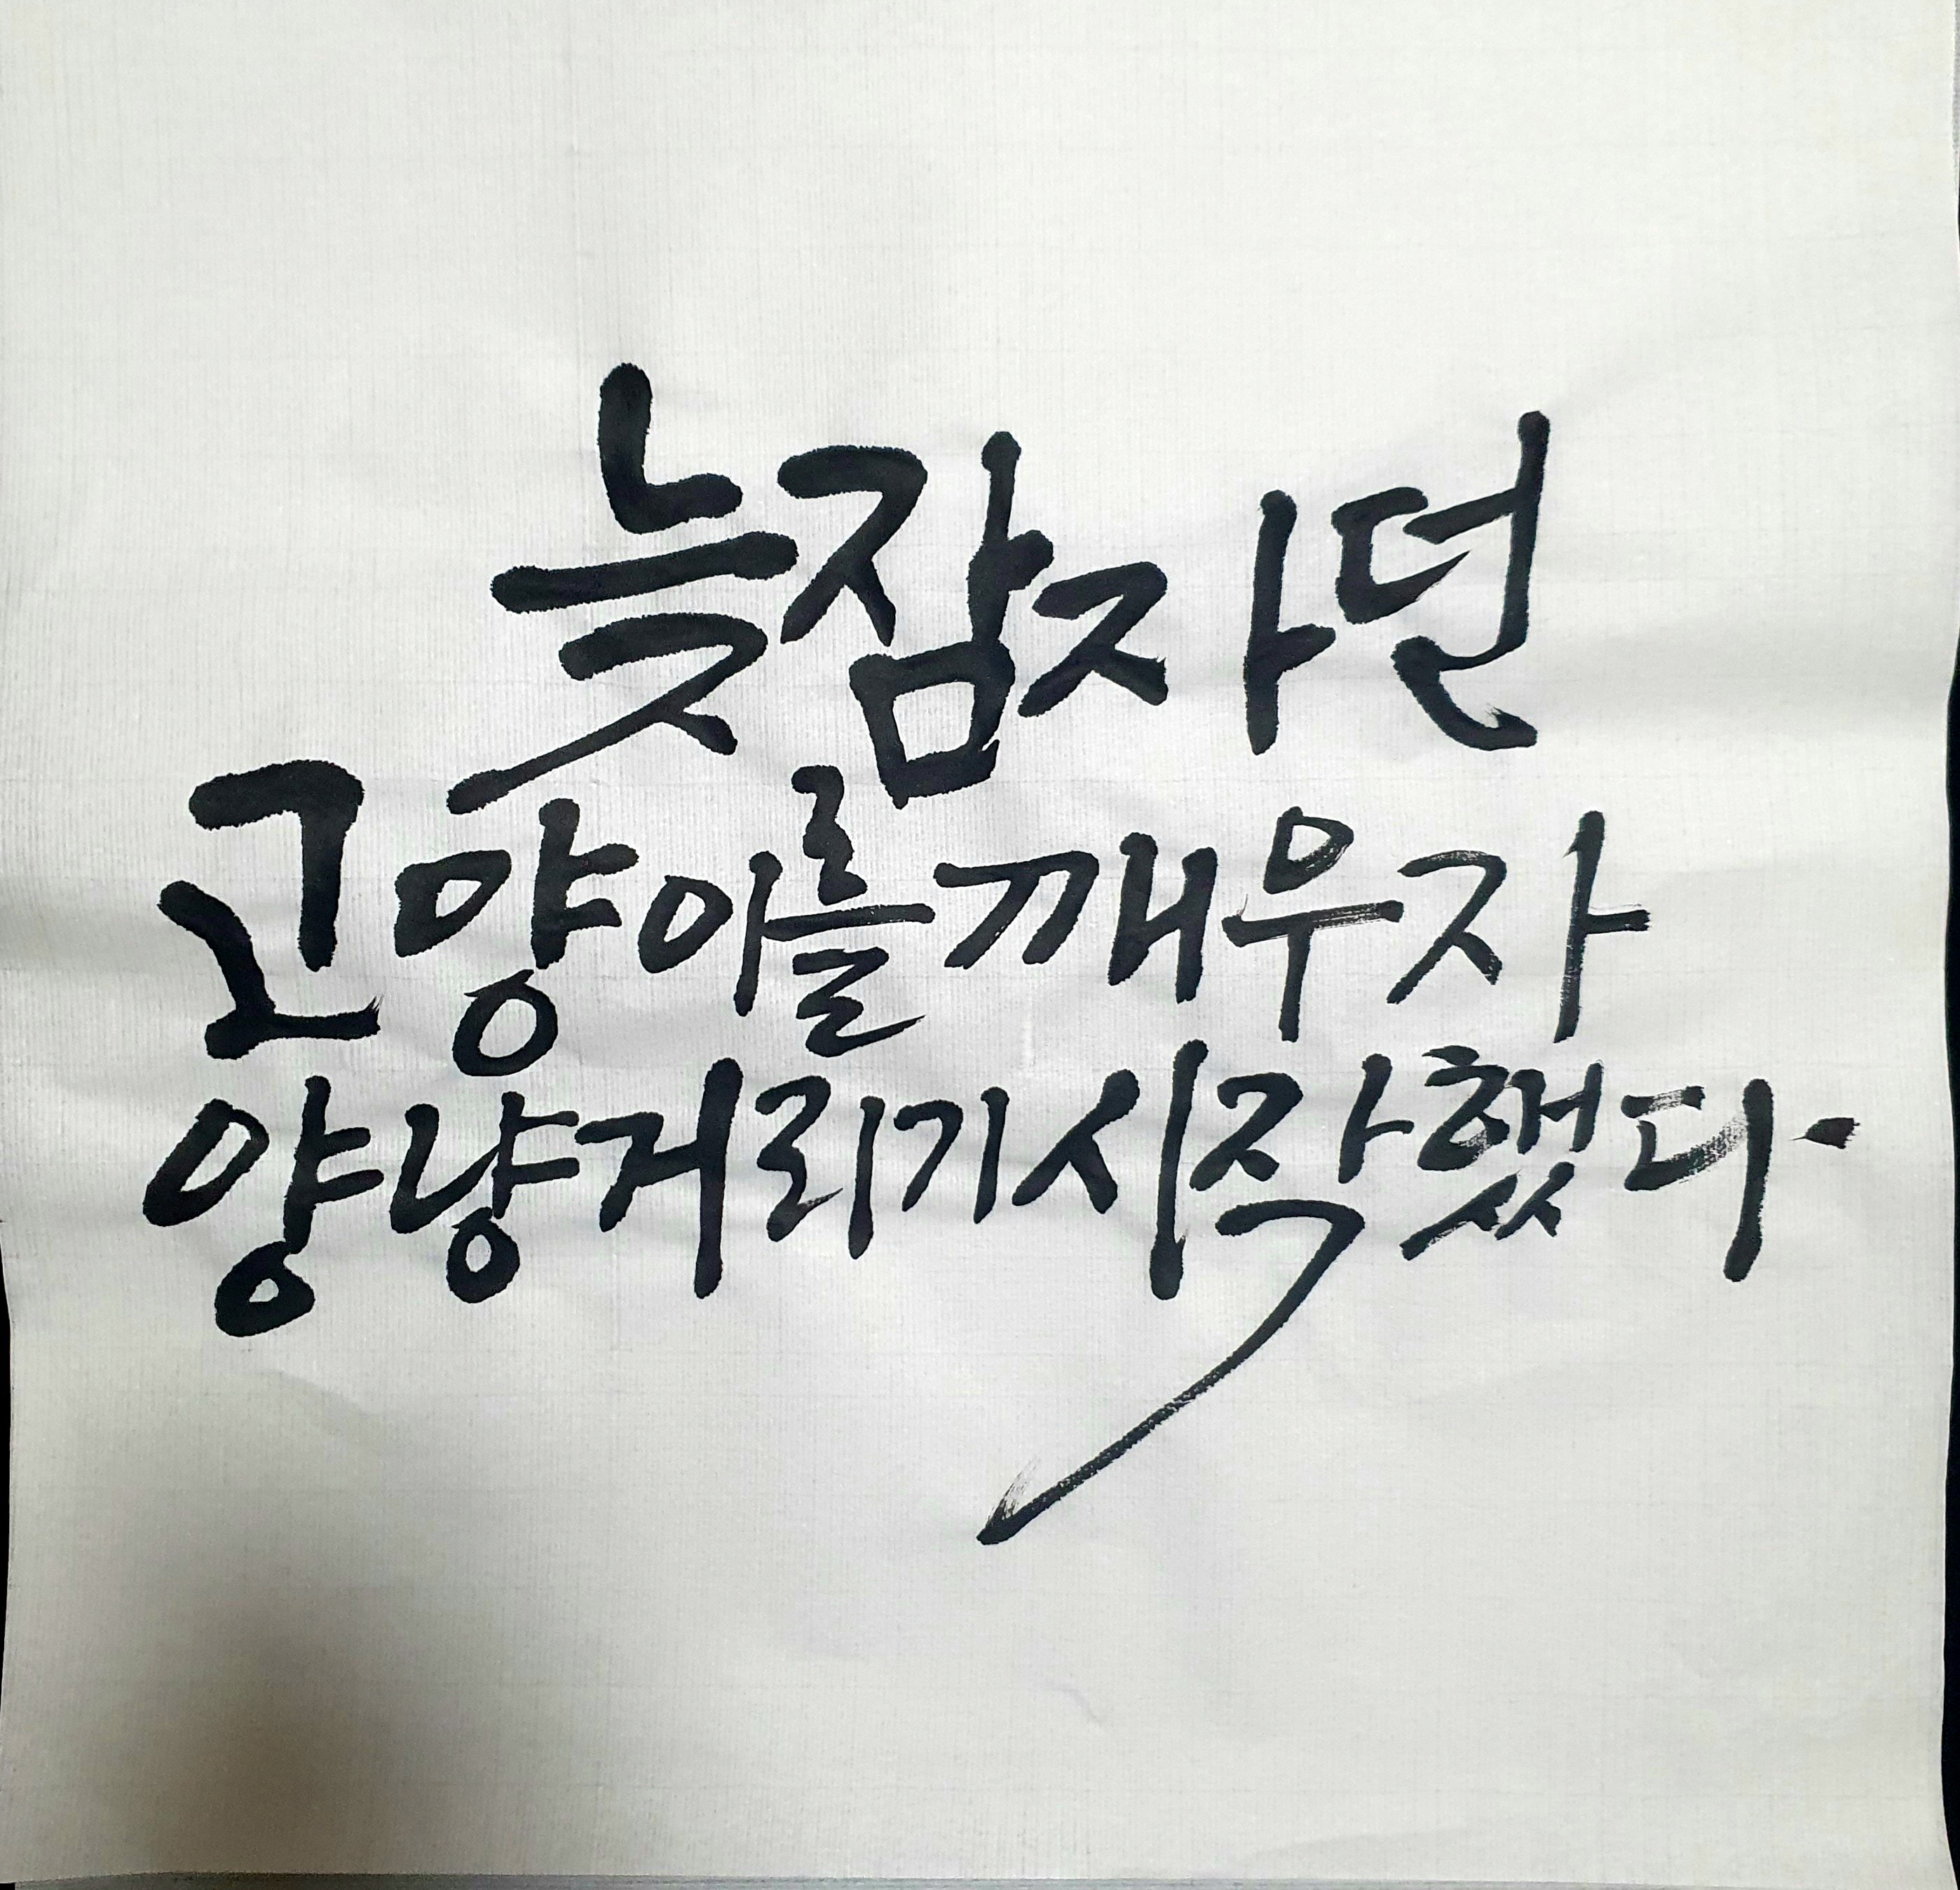 늦잠자던
고양이를 깨우자
양냥거리기 시작했다.